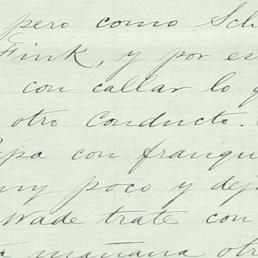 pero como Sch
Fink, y por es
con callar lo q
otro conducto.
pa con franqu
my poco y dej
Wade trate con
mañana otr